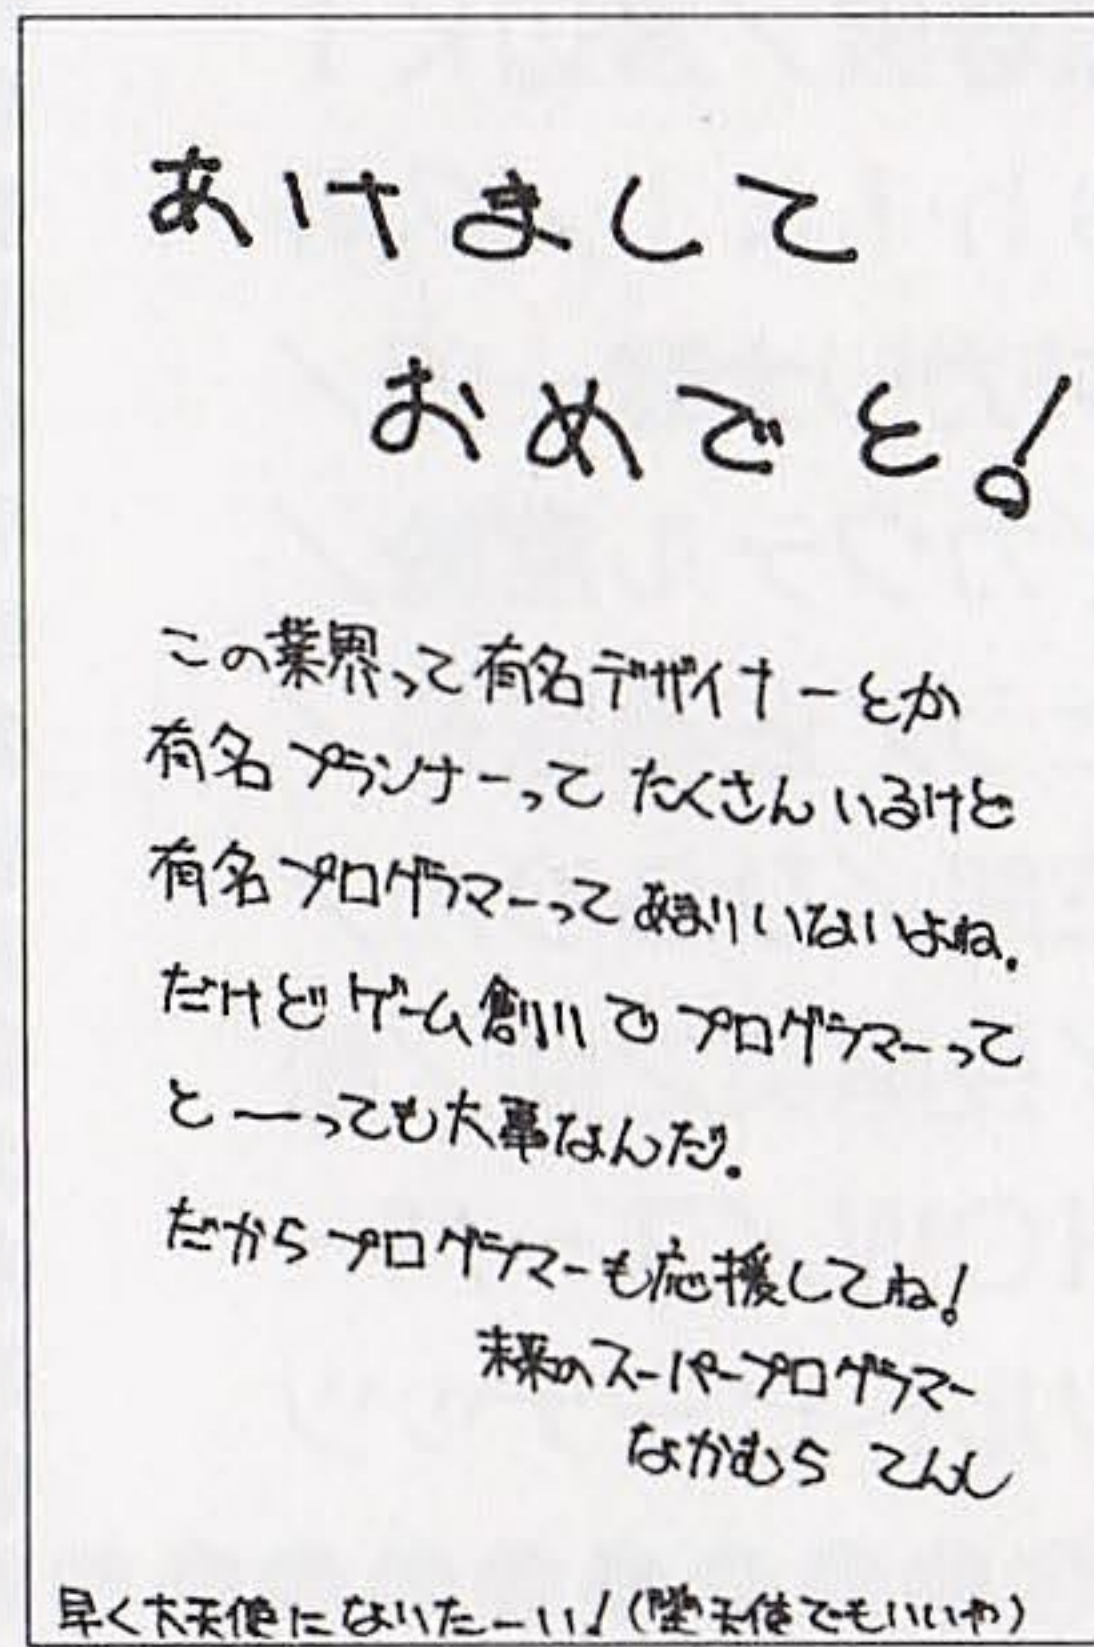 あけまして
おめでと!
この業界って有名デザイナーとか
有名プランナーってたくさんいるけど
有名プログラマーってあまりいないよね.
だけどゲーム創りでプログラマーって
と――っても大事なんだ.
だからプログラマーも応援してね!
未来のスーパープログラマー
なかむら てんし
早く大天使になりたーい!(堕天使でもいいや)